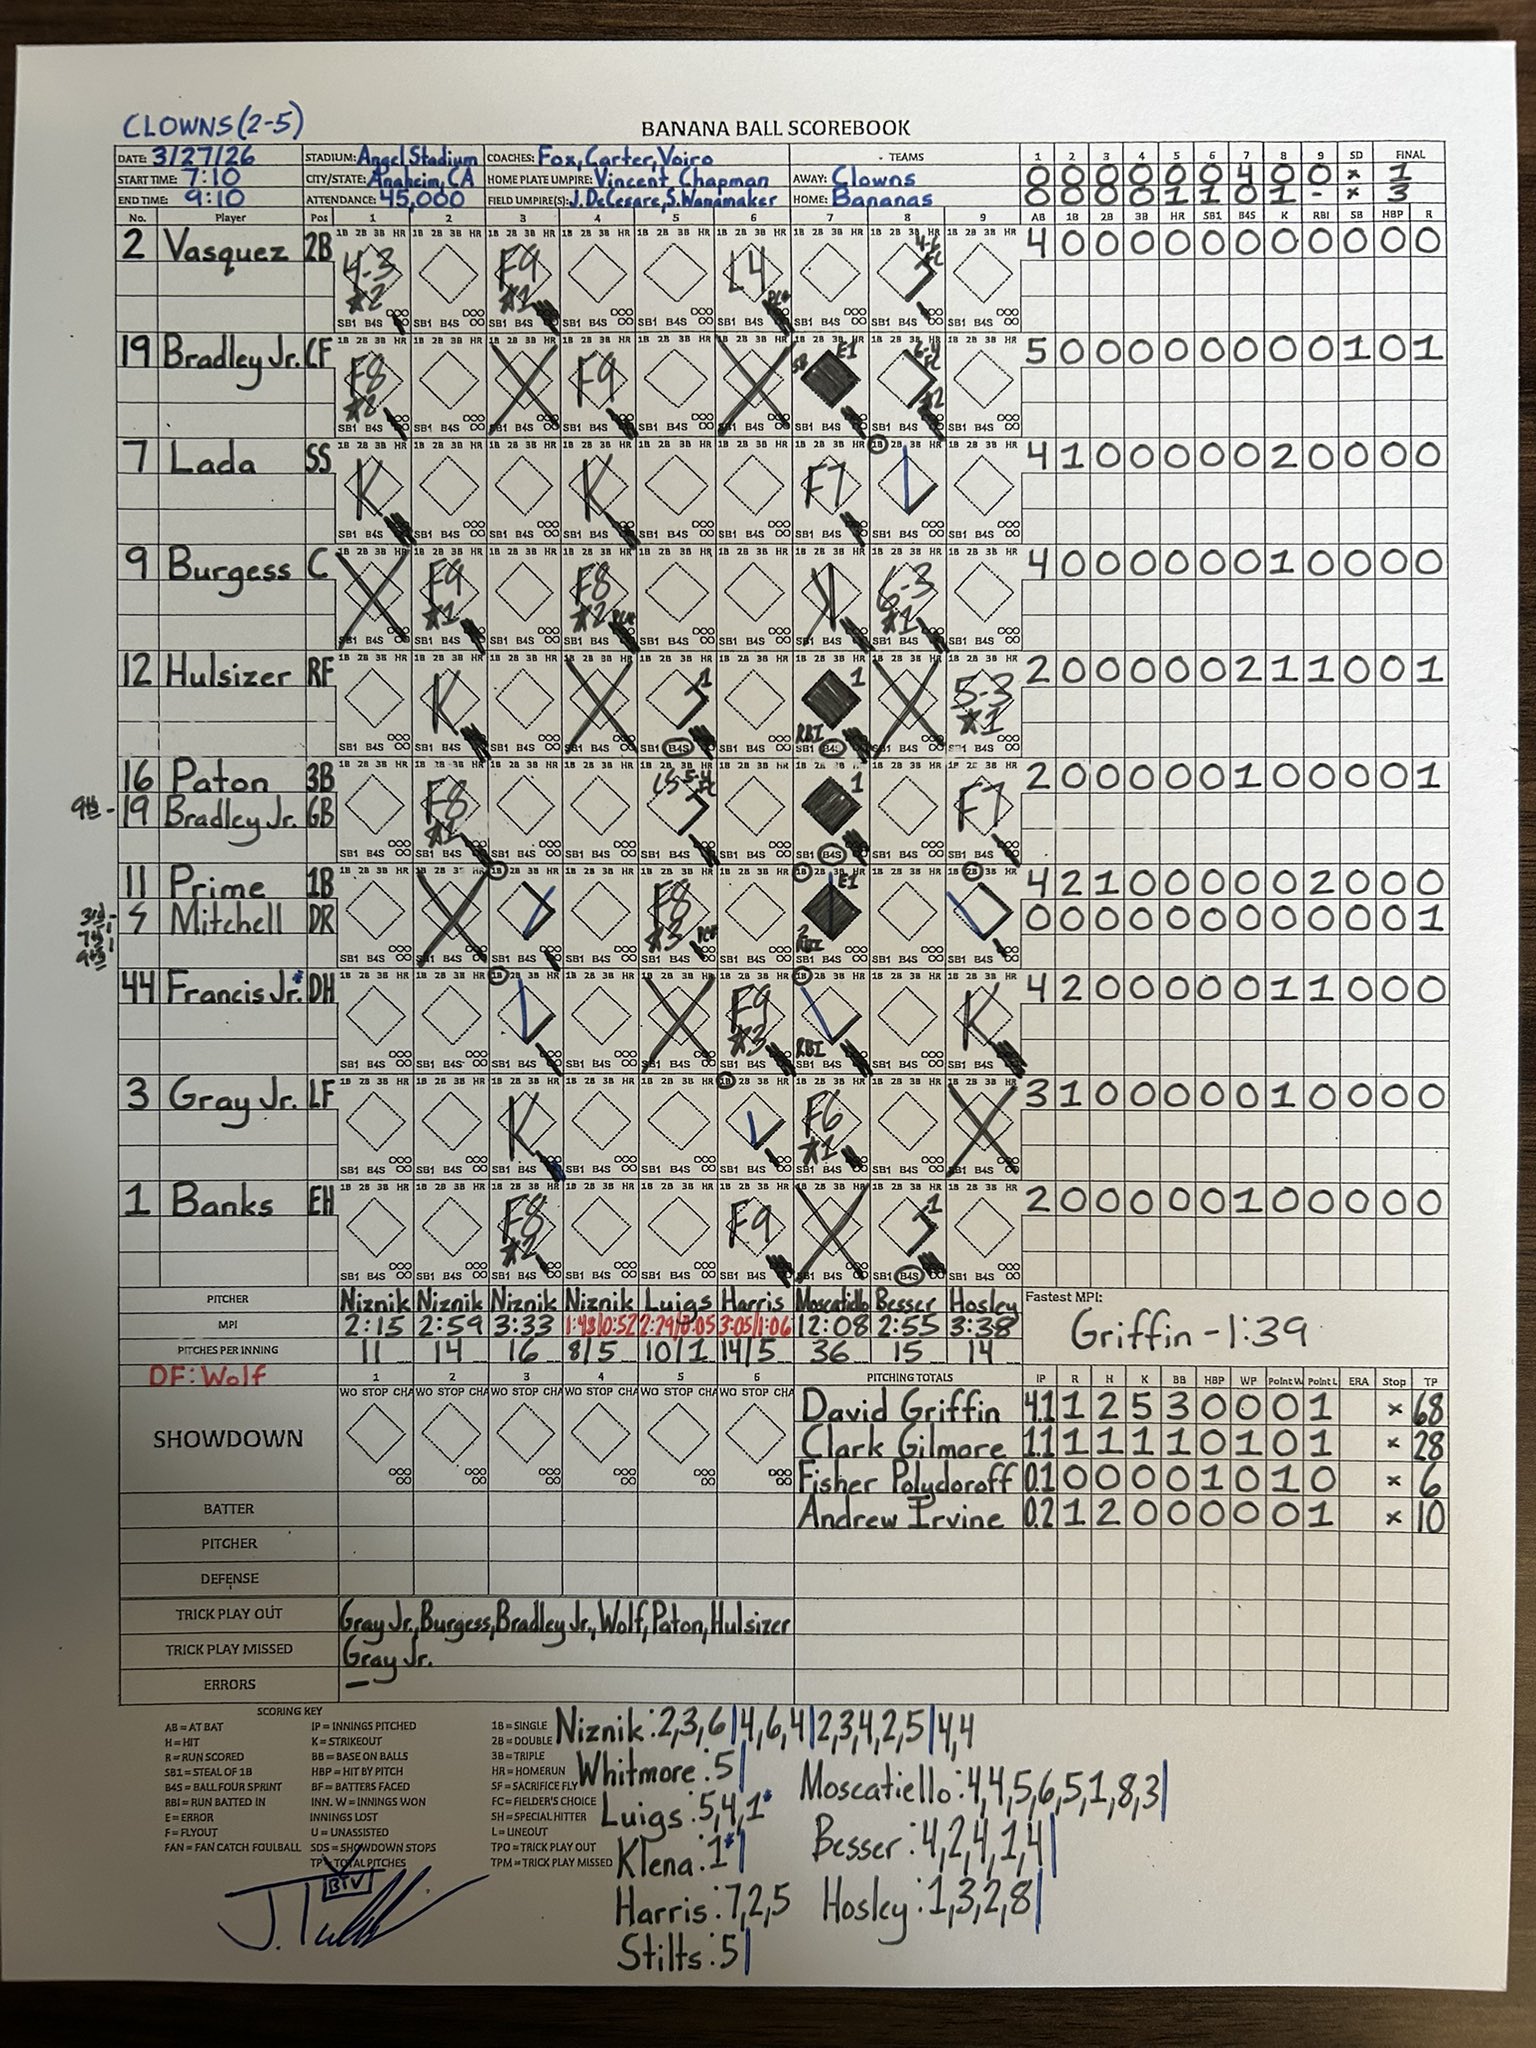 CLOWNS (2-5)
BANANA BALL SCOREBOOK
DATE: 3/27/26 STADIUM: Angel Stadium COACHES: Fox, Carter, Voiro - TEAMS 1 2 3 4 5 6 7 8 9 SD FINAL
START TIME: 7:10 CITY/STATE: Anaheim, CA HOME PLATE UMPIRE: Vincent Chapman AWAY: Clowns 0 0 0 0 0 0 4 0 0 x 1
END TIME: 9:10 ATTENDANCE: 45,000 FIELD UMPIRE(S): J. DeCesare, S. Wanamaker HOME: Bananas 0 0 0 0 1 1 0 1 - x 3
No. Player Pos 1 2 3 4 5 6 7 8 9 AB 1B 2B 3B HR SB1 B4S K RBI SB HBP R
2 Vasquez 2B 4-3 #2 F9 #1 L4 4-6 FC 4 0 0 0 0 0 0 0 0 0 0 0
19 Bradley Jr. CF F8 #2 F9 SB E1 6-4 FC #2 5 0 0 0 0 0 0 0 0 1 0 1
7 Lada SS K K F7 4 1 0 0 0 0 0 2 0 0 0 0
9 Burgess C F9 #1 F8 #2 K 6-3 #1 4 0 0 0 0 0 0 1 0 0 0 0
12 Hulsizer RF K 1 1 RBI 5-3 #1 2 0 0 0 0 0 2 1 1 0 0 1
16 Paton 3B F8 #1 5-4 FC 1 F7 2 0 0 0 0 0 1 0 0 0 0 1
9th - 19 Bradley Jr. GB
11 Prime 1B F8 #3 E1 2 RBI 4 2 1 0 0 0 0 0 2 0 0 0
3rd - 7th 9th 5 Mitchell DR 0 0 0 0 0 0 0 0 0 0 0 1
44 Francis Jr.* DH F9 #3 RBI K 4 2 0 0 0 0 0 1 1 0 0 0
3 Gray Jr. LF K F6 #1 3 1 0 0 0 0 0 1 0 0 0 0
1 Banks EH F8 #2 F9 1 2 0 0 0 0 0 1 0 0 0 0 0
PITCHER Niznik Niznik Niznik Niznik Luigs Harris Moscatiello Besser Hosley Fastest MPI:
MPI 2:15 2:59 3:33 1:43/0:52 2:29/0:05 3:05/1:06 12:08 2:55 3:38 Griffin - 1:39
PITCHES PER INNING 11 14 16 8/5 10/1 14/5 36 15 14
DF: Wolf 1 2 3 4 5 6 PITCHING TOTALS IP R H K BB HBP WP Point W Point L ERA Stop TP
SHOWDOWN WO STOP CHA WO STOP CHA WO STOP CHA WO STOP CHA WO STOP CHA WO STOP CHA
David Griffin 4.1 1 2 5 3 0 0 0 1 x 68
Clark Gilmore 1.1 1 1 1 1 0 1 0 1 x 28
Fisher Polydoroff 0.1 0 0 0 0 1 0 1 0 x 6
BATTER Andrew Irvine 0.2 1 2 0 0 0 0 0 1 x 10
PITCHER
DEFENSE
TRICK PLAY OUT Gray Jr., Burgess, Bradley Jr., Wolf, Paton, Hulsizer
TRICK PLAY MISSED Gray Jr.
ERRORS –
SCORING KEY
AB = AT BAT IP = INNINGS PITCHED 1B = SINGLE
H = HIT K = STRIKEOUT 2B = DOUBLE
R = RUN SCORED BB = BASE ON BALLS 3B = TRIPLE
SB1 = STEAL OF 1B HBP = HIT BY PITCH HR = HOMERUN
B4S = BALL FOUR SPRINT BF = BATTERS FACED SF = SACRIFICE FLY
RBI = RUN BATTED IN INN. W = INNINGS WON FC = FIELDER'S CHOICE
E = ERROR INNINGS LOST SH = SPECIAL HITTER
F = FLYOUT U = UNASSISTED L = LINEOUT
FAN = FAN CATCH FOULBALL SDS = SHOWDOWN STOPS TPO = TRICK PLAY OUT
TP = TOTAL PITCHES TPM = TRICK PLAY MISSED
Niznik: 2,3,6|4,6,4|2,3,4,2,5|4,4
Whitmore: 5|
Luigs: 5,4,1*
Klena: 1*|
Harris: 7,2,5
Stilts: 5|
Moscatiello: 4,4,5,6,5,1,8,3|
Besser: 4,2,4,1,4|
Hosley: 1,3,2,8|
BTV